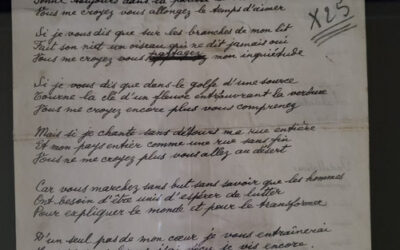 Sonne toujours dans la
Vous me croyez vous allongez le temps d'aimer
X25
Si je vous dis que sur les branches de mon lit
Fait son nid un oiseau qui ne dit jamais oui
Vous me croyez vous partagez mon inquiétude
Si je vous dis que dans le golfe d'une source
Tourne la clé d'un fleuve entr'ouvrant la verdure
Vous me croyez encore plus vous comprenez
Mais si je chante sans détours ma rue entière
Et mon pays entier comme une rue sans fin
Vous ne me croyez plus vous allez au désert
Car vous marchez sans but sans savoir que les hommes
Ont besoin d'être unis d'espérer de lutter
Pour expliquer le monde et pour le transformer
D'un seul pas de mon cœur je vous entraînerai
je vis encore